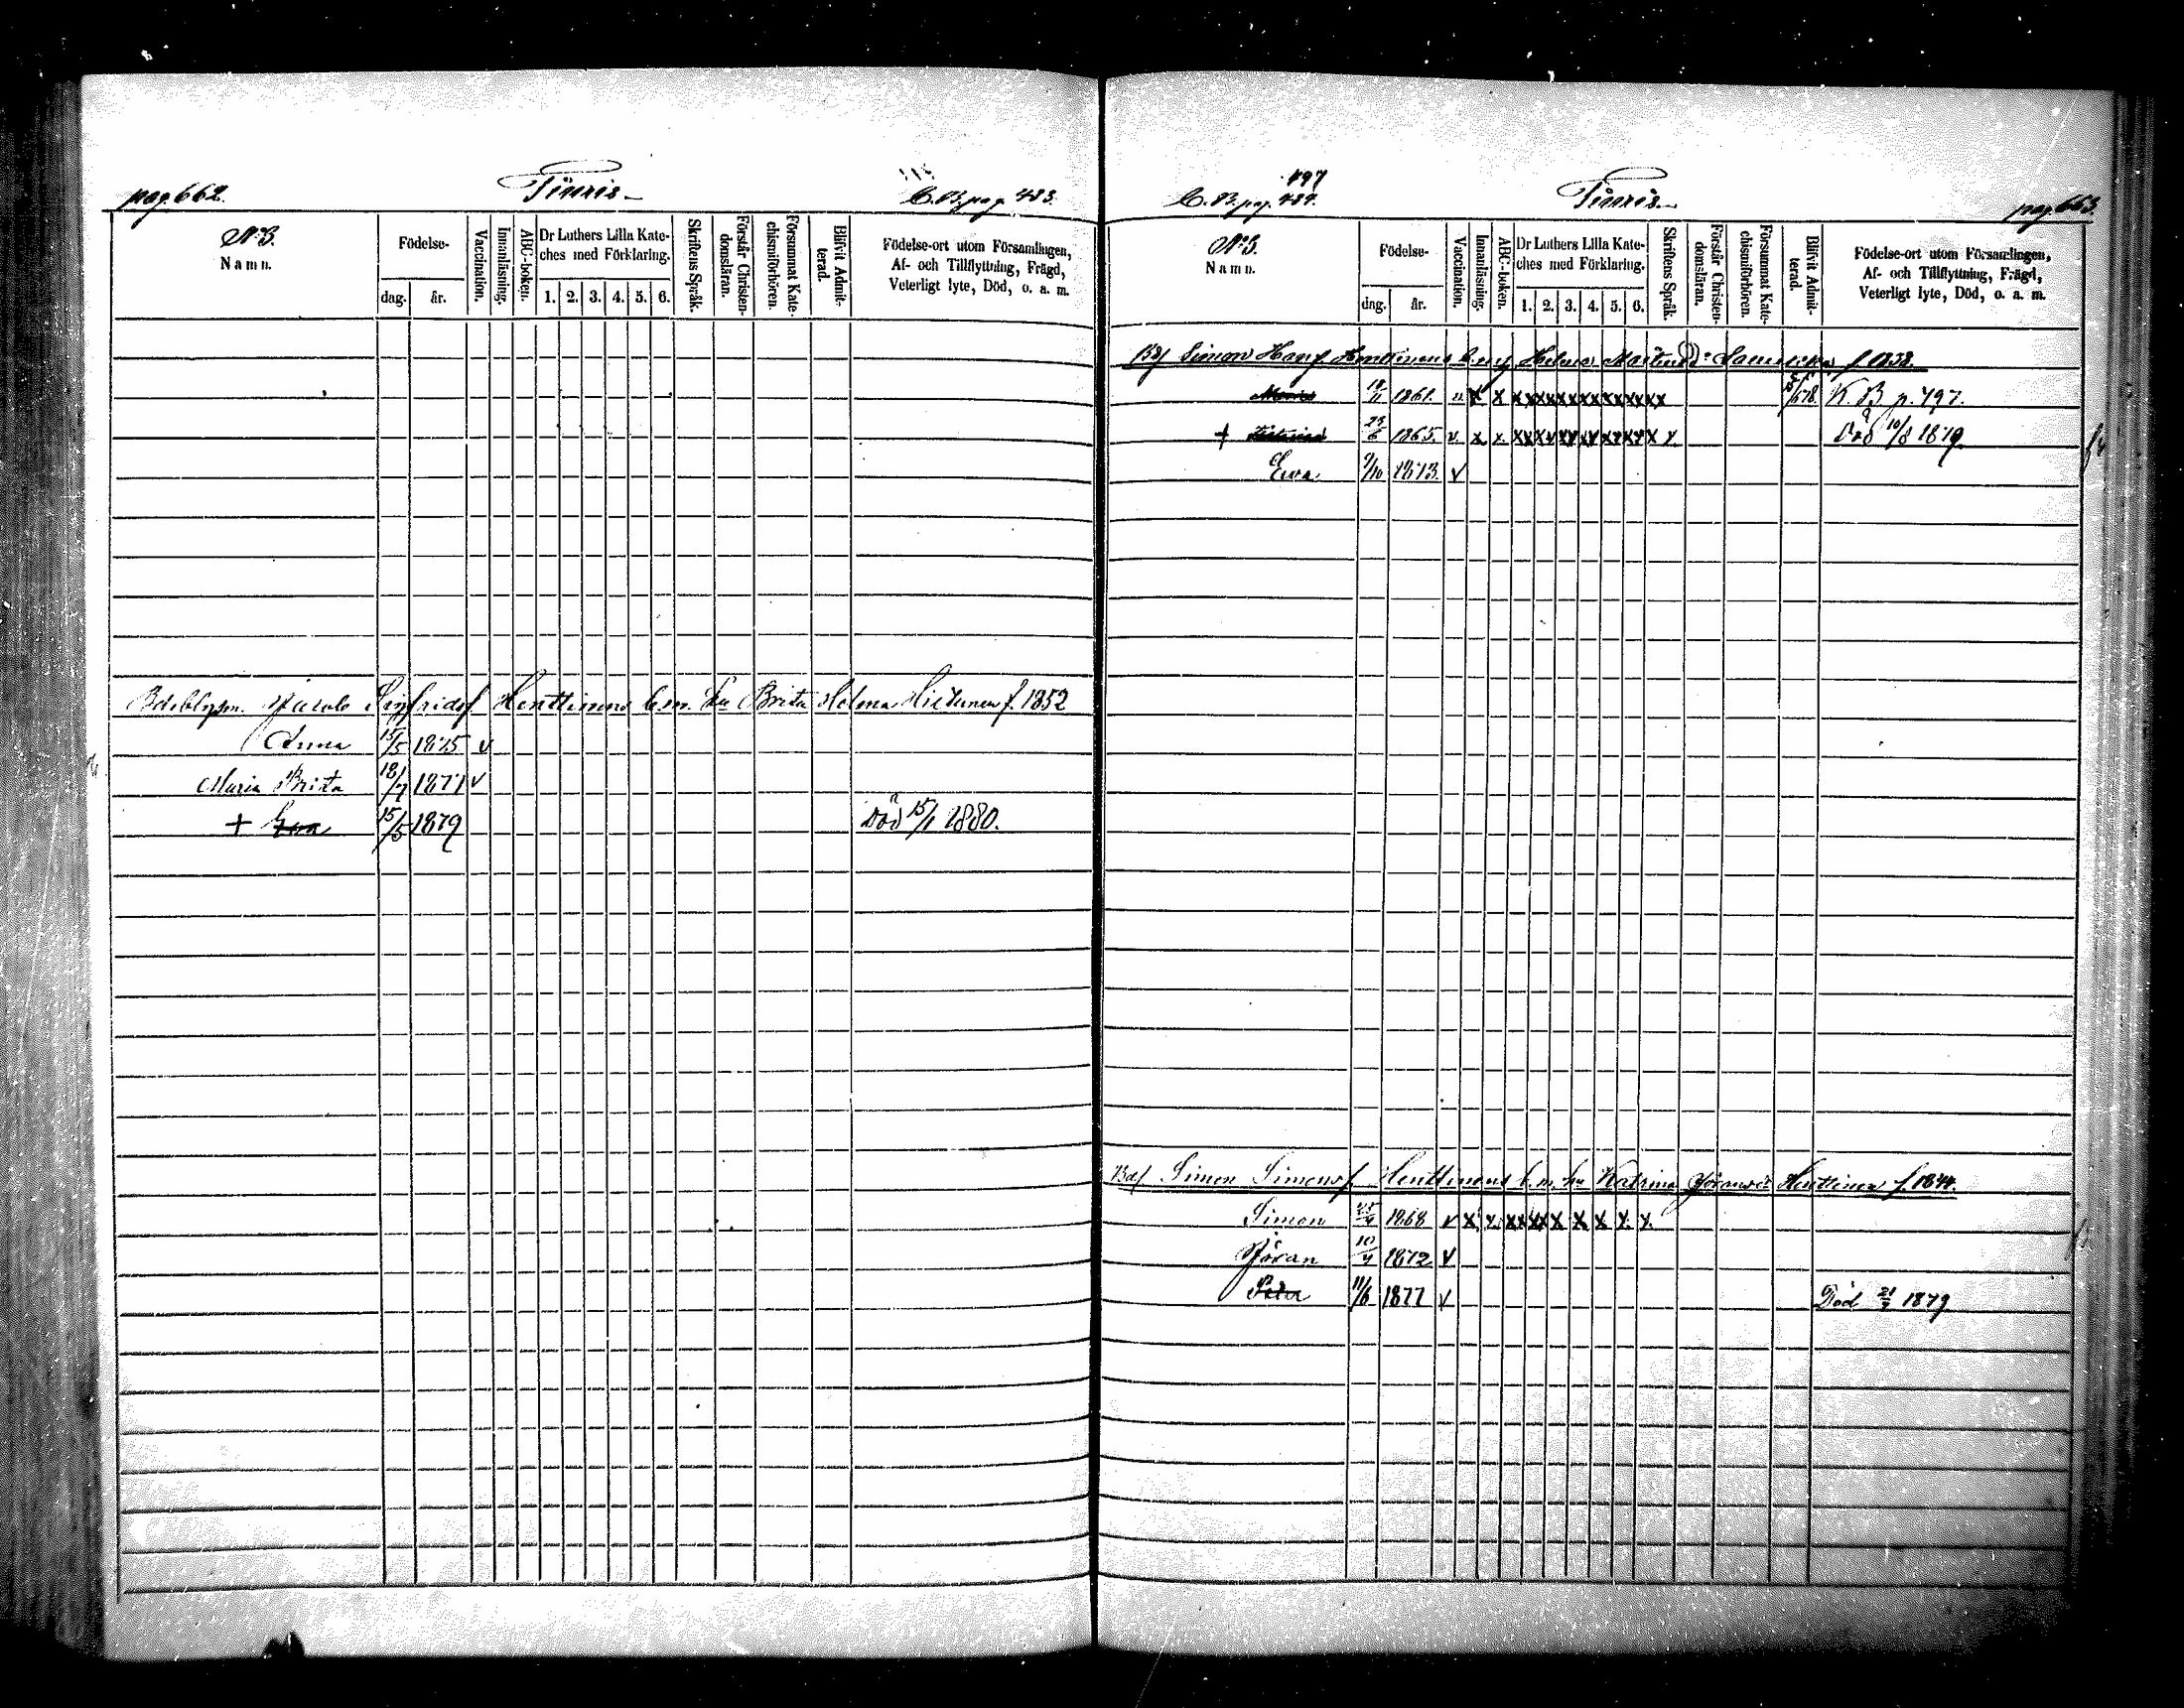 pag. 662. C.B. pag. 483.
No 3.
Namn.
Födelse-
dag. år.
Vaccination.
Innanläsning.
ABC-boken.
Dr Luthers Lilla Kate-
ches med Förklaring.
1. 2. 3. 4. 5. 6.
Skriftens Språk.
Förstår Christen-
domsläran.
Försummat Kate-
chismiförhören.
Blifvit Admit-
terad.
Födelse-ort utom Församlingen,
Af- och Tillflyttning, Frägd,
Veterligt lyte, Död, o. a. m.
Jacob Sigfridsf Henttinens b. m. hu Brita Helena f. 1852
Anna 15/5 1875 v
Maria Brita 18/7 1877 v
+ Eva 15/5 1879 Död 15/1 1880.
497
C.B. pag. 484. pag. 663.
No 3.
Namn.
Födelse-
dag. år.
Vaccination.
Innanläsning.
ABC-boken.
Dr Luthers Lilla Kate-
ches med Förklaring.
1. 2. 3. 4. 5. 6.
Skriftens Språk.
Förstår Christen-
domsläran.
Försummat Kate-
chismiförhören.
Blifvit Admit-
terad.
Födelse-ort utom Församlingen,
Af- och Tillflyttning, Frägd,
Veterligt lyte, Död, o. a. m.
Simon Hansf Henttinens Helena f. 1838.
18/11 1861. x x x x x x x x x x x x x x x x K.B. p. 497.
+ 23/6 1865. v x x x x x x x x x x x x x x x x Död 10/8 1879
Eva 9/10 1873. v
Simon Simonsf Henttinens b. m. hu Katrina Henttinen f. 1844.
Simon 1868 v x x x x x x x x x x x
Jöran 10/4 1872 v
Peter 11/6 1877 v Död 1879